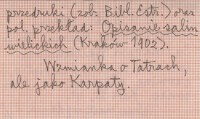 przedruki (zob. Bibl. Estr.) oraz
pol. przekład: Opisanie salin
wielickich (Kraków 1902).
Wzmianka o Tatrach,
ale jako Karpaty.